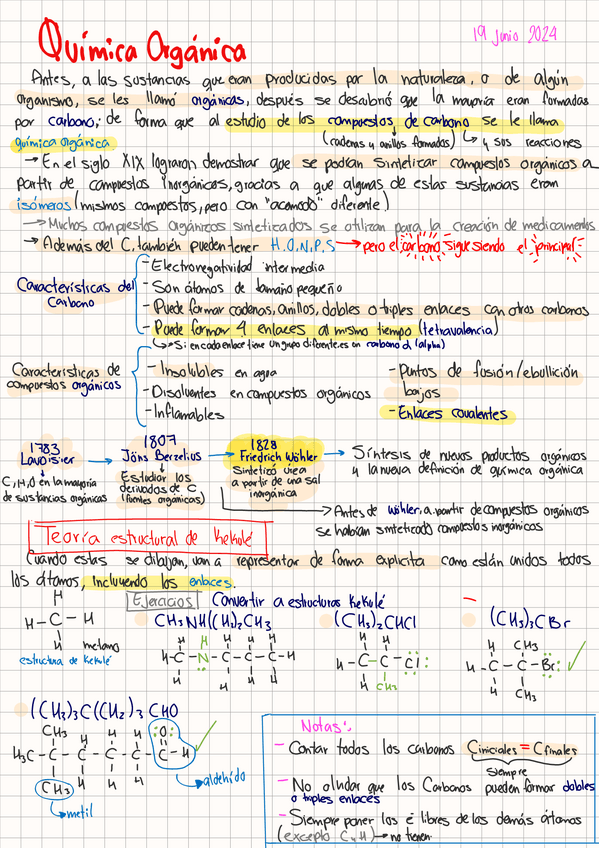 Química Orgánica
19 junio 2024
Antes, a las sustancias que eran producidas por la naturaleza, o de algún
organismo, se les llamó orgánicas, después se descubrió que la mayoria eran formadas
por carbono; de forma que al estudio de los compuestos de carbono se le llama
química orgánica (cadenas y anillos formados) y sus reacciones
→ En el siglo XIX lograron demostrar que se podían sintetizar compuestos orgánicos a
partir de compuestos inorgánicos, gracias a que algunas de estas sustancias eran
isómeros (mismos compuestos, pero con "acomodo" diferente)
→ Muchos compuestos orgánicos sintetizados se utilizan para la creación de medicamentos
→ Además del C, también pueden tener H, O, N, P, S → pero el carbono sigue siendo el principal
Características del
Carbono
- Electronegatividad intermedia
- Son átomos de tamaño pequeño
- Puede formar cadenas, anillos, dobles o triples enlaces con otros carbonos
- Puede formar 4 enlaces al mismo tiempo (tetravalencia)
↳ Si en cada enlace tiene un grupo diferente, es un carbono α (alpha)
Características de
compuestos orgánicos
- Insolubles en agua
- Disolventes en compuestos orgánicos
- Inflamables
- Puntos de fusión/ebullición
bajos
- Enlaces covalentes
1783
Lavoisier
C, H, O en la mayoría
de sustancias orgánicas
1807
Jöns Berzelius
Estudiar los
derivados de C
(fuentes orgánicas)
1828
Friedrich Wöhler
Sintetizó úrea
a partir de una sal
inorgánica
Síntesis de nuevos productos orgánicos
y la nueva definición de química orgánica
→ Antes de Wöhler, a partir de compuestos orgánicos
se habían sintetizado compuestos inorgánicos
Teoría estructural de Kekulé
Cuando estas se dibujan, van a representar de forma explícita como están unidos todos
los átomos, incluyendo los enlaces.
Ejercicios Convertir a estructuras Kekulé
H
H - C - H
H
metano
estructura de Kekulé
CH₃NH(CH₂)₂CH₃
H H H H H
H - C - N - C - C - C - H
H H H H
(CH₃)₂CHCl
H H
H - C - C - Cl
H CH₃
(CH₃)₃CBr
H CH₃
H - C - C - Br
H CH₃
(CH₃)₃C(CH₂)₃CHO
CH₃ H H H O
H₃C - C - C - C - C - C - H
CH₃ H H H
aldehído
metil
Notas:
- Contar todos los carbonos C iniciales = C finales
siempre
- No olvidar que los Carbonos pueden formar dobles
o triples enlaces
- Siempre poner los e⁻ libres de los demás átomos
(excepto C y H) → no tienen